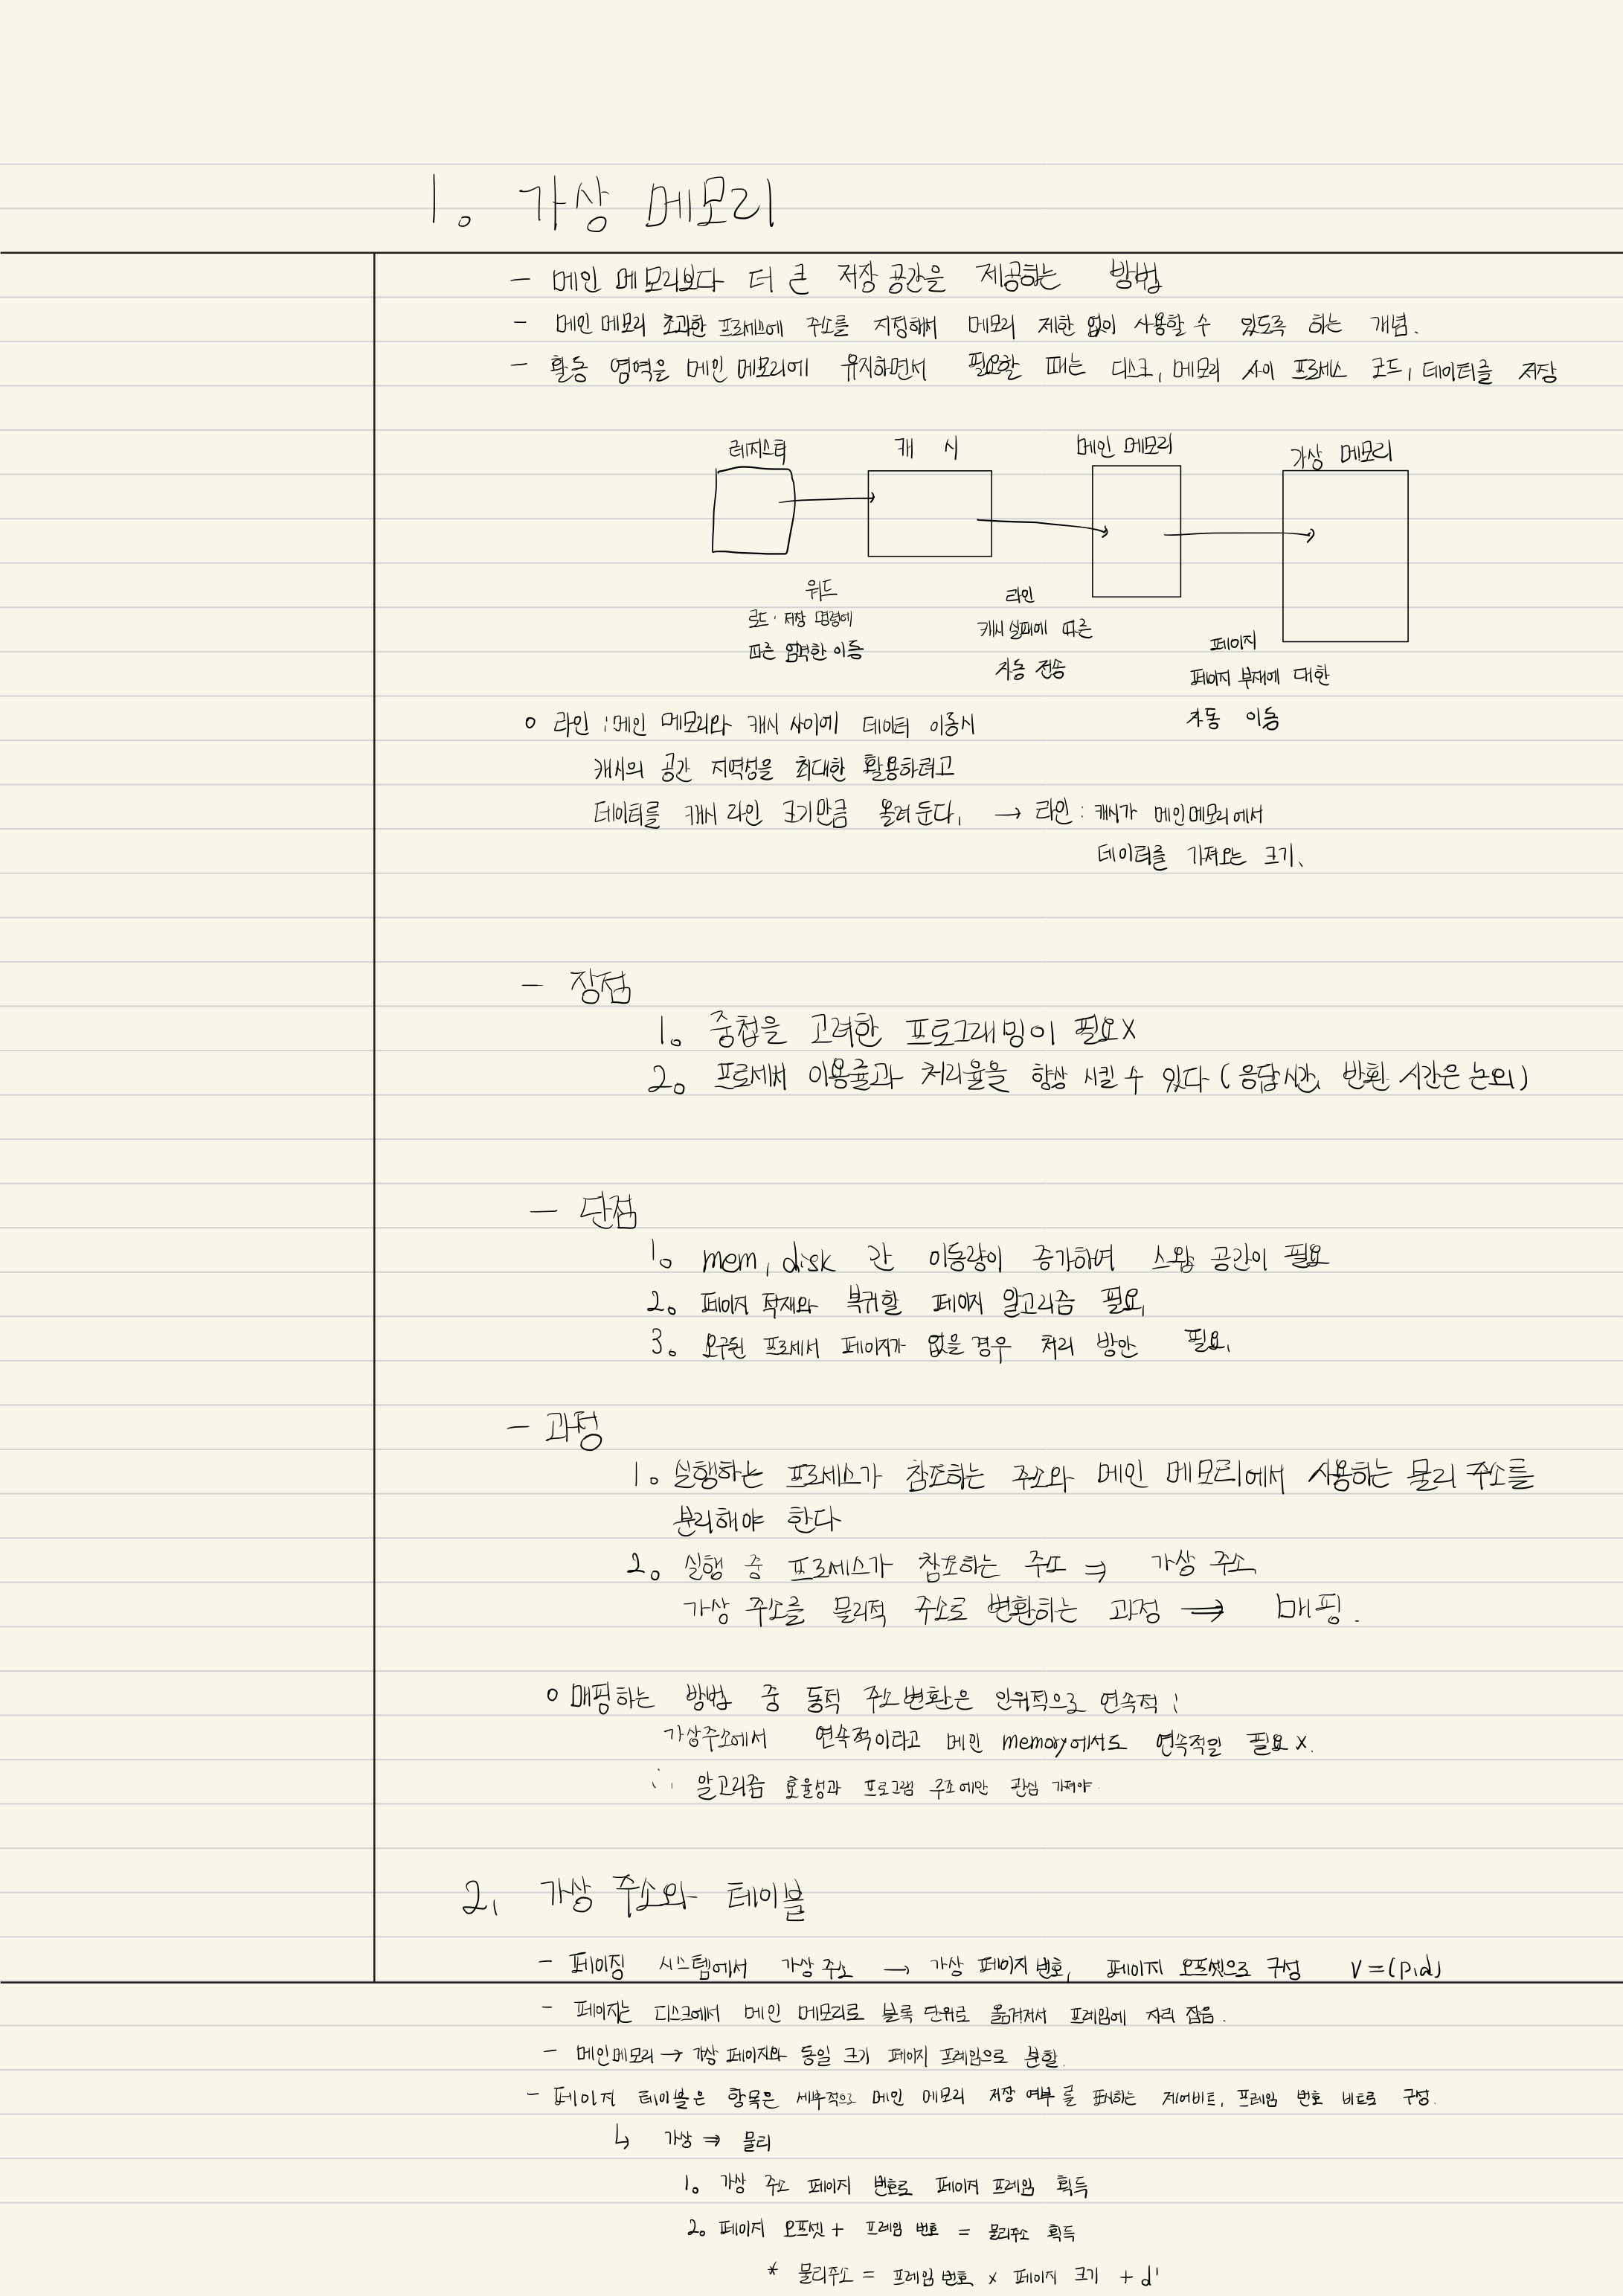 1. 가상 메모리
- 메인 메모리보다 더 큰 저장 공간을 제공하는 방법
- 메인 메모리 초과한 프로세스에 주소를 지정해서 메모리 제한 없이 사용할 수 있도록 하는 개념.
- 활동 영역을 메인 메모리에 유지하면서 필요할 때는 디스크, 메모리 사이 프로세스 코드, 데이터를 저장
레지스터 캐시 메인 메모리 가상 메모리
워드
로드·저장 명령에
따른 이동
라인
캐시 실패에 따른
자동 전송
페이지
페이지 부재에 대한
자동 이동
○ 라인 : 메인 메모리와 캐시 사이에 데이터 이동시
캐시의 공간 지역성을 최대한 활용하려고
데이터를 캐시 라인 크기만큼 올려 둔다. → 라인 : 캐시가 메인메모리에서
데이터를 가져오는 크기.
- 장점
1. 중첩을 고려한 프로그래밍이 필요X
2. 프로세서 이용률과 처리율을 향상 시킬 수 있다 (응답시간, 반환 시간은 논외)
- 단점
1. mem, disk 간 이동량이 증가하여 스왑 공간이 필요
2. 페이지 적재와 복귀할 페이지 알고리즘 필요.
3. 요구된 프로세서 페이지가 없을 경우 처리 방안 필요.
- 과정
1. 실행하는 프로세스가 참조하는 주소와 메인 메모리에서 사용하는 물리 주소를
분리해야 한다
2. 실행 중 프로세스가 참조하는 주소 ⇒ 가상 주소
가상 주소를 물리적 주소로 변환하는 과정 ⇒ 매핑.
○ 매핑하는 방법 중 동적 주소변환은 인위적으로 연속적 :
가상주소에서 연속적이라고 메인 memory에서도 연속적일 필요 X.
∴ 알고리즘 효율성과 프로그램 구조에만 관심 가져야
2. 가상 주소와 테이블
- 페이징 시스템에서 가상 주소 → 가상 페이지 번호, 페이지 오프셋으로 구성 V=(p,d)
- 페이지는 디스크에서 메인 메모리로 블록 단위로 옮겨져서 프레임에 자리 잡음.
- 메인메모리 → 가상 페이지와 동일 크기 페이지 프레임으로 분할.
- 페이지 테이블은 항목은 세부적으로 메인 메모리 저장 여부를 표시하는 제어비트, 프레임 번호 비트로 구성.
↳ 가상 ⇒ 물리
1. 가상 주소 페이지 번호로 페이지 프레임 획득
2. 페이지 오프셋 + 프레임 번호 = 물리주소 획득
* 물리주소 = 프레임 번호 x 페이지 크기 + d'